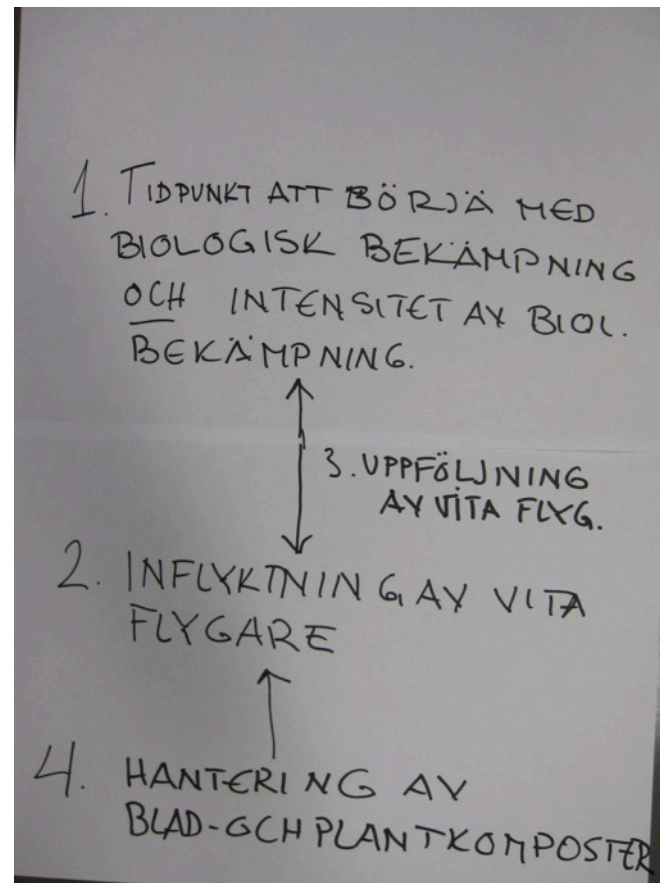 1. TIDPUNKT ATT BÖRJÄ MED
BIOLOGISK BEKÄMPNING
OCH INTENSITET AV BIOL.
BEKÄMPNING.
3. UPPFÖLJNING
AV VITA FLYG.
2. INFLYKTNING AV VITA
FLYGARE
4. HANTERING AV
BLAD-OCH PLANTKOMPOSTER